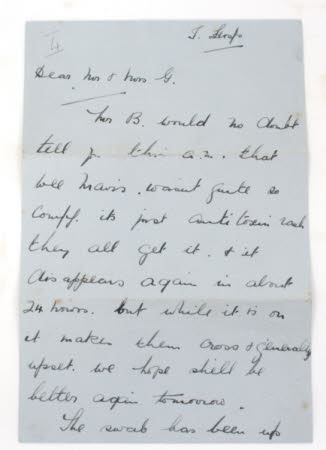 4
Dear Mr & Mrs G.
Mrs B. would no doubt
tell you this a.m. that
wee Mavis. wasnt quite so
comfy. its just antitoxin rash
they all get it. & it
dissappears again in about
24 hours. but while it is on
it makes them cross & generally
upset. we hope shell be
better again tomorrow.
The swab has been up